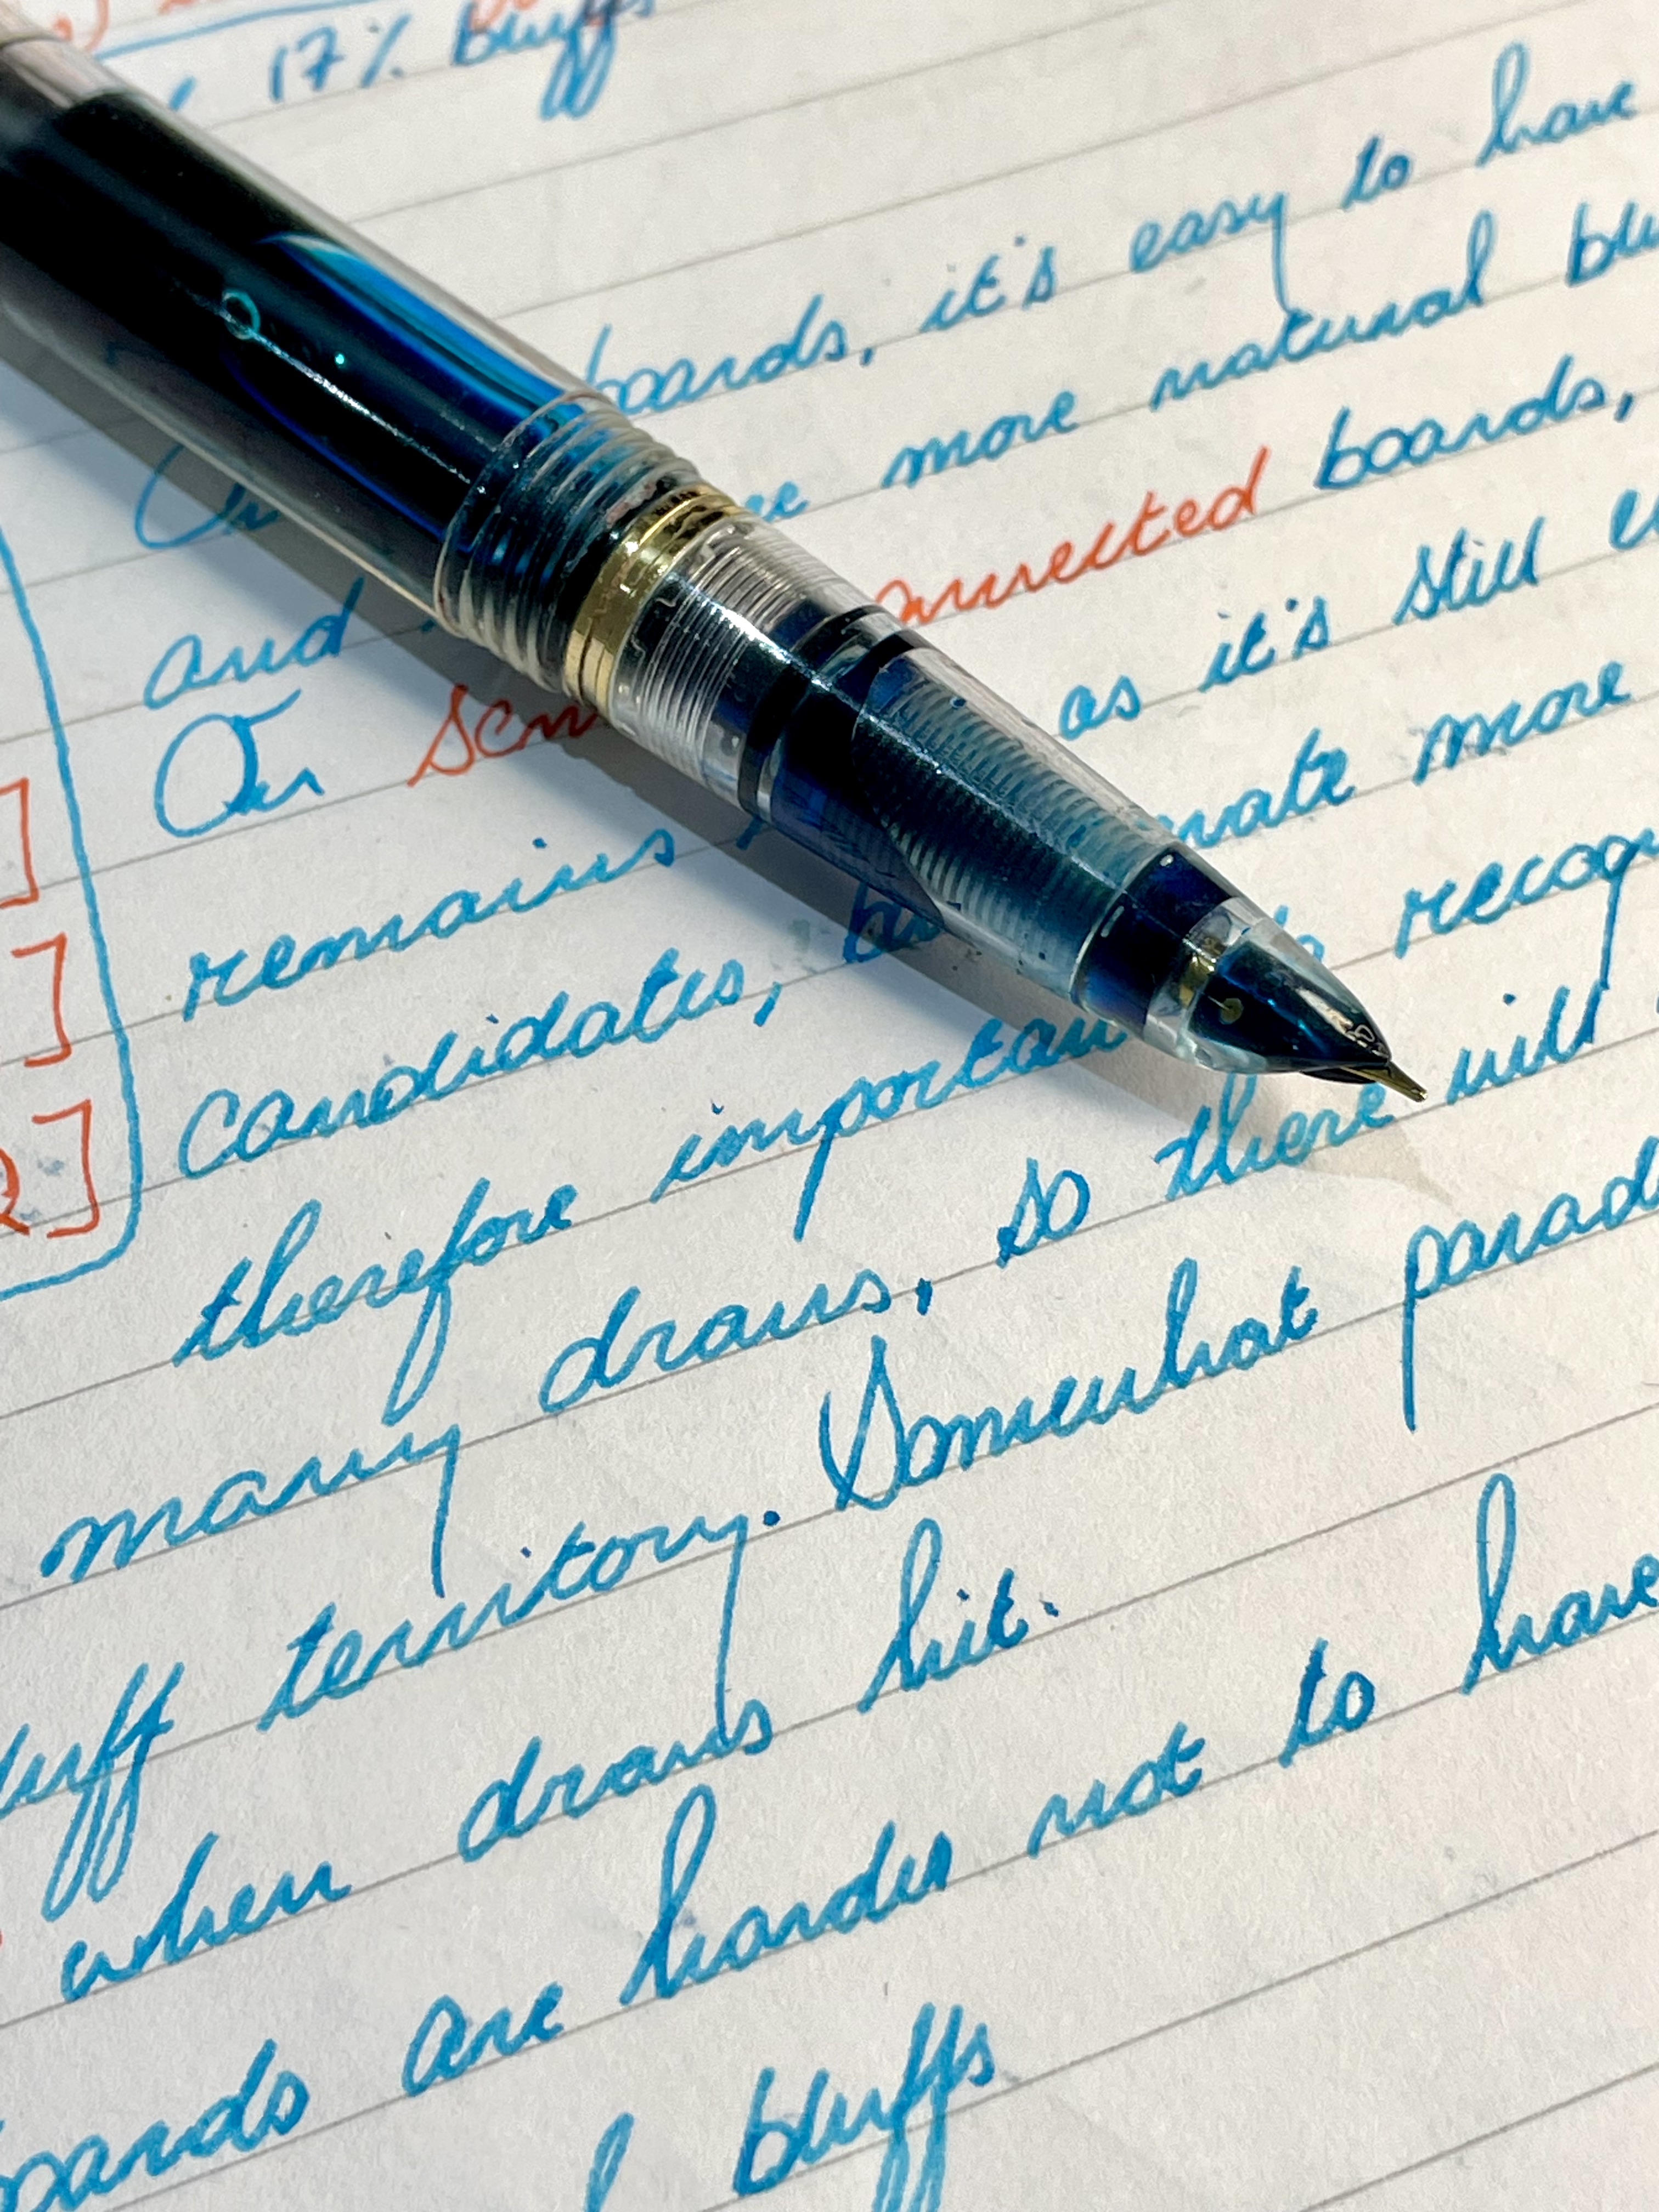 17% bluffs
boards, it's easy to have
On more natural
and connected boards,
On as it's still
remains more
candidates, recog
therefore important there will
many draws, so parad
bluff territory. Somewhat
when draws hit. to have
boards are harder not
bluffs